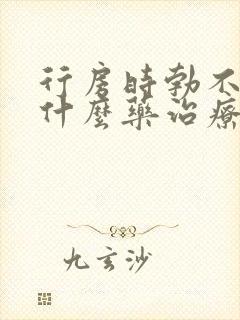 行房時勃不
什麼藥治療
九玄沙